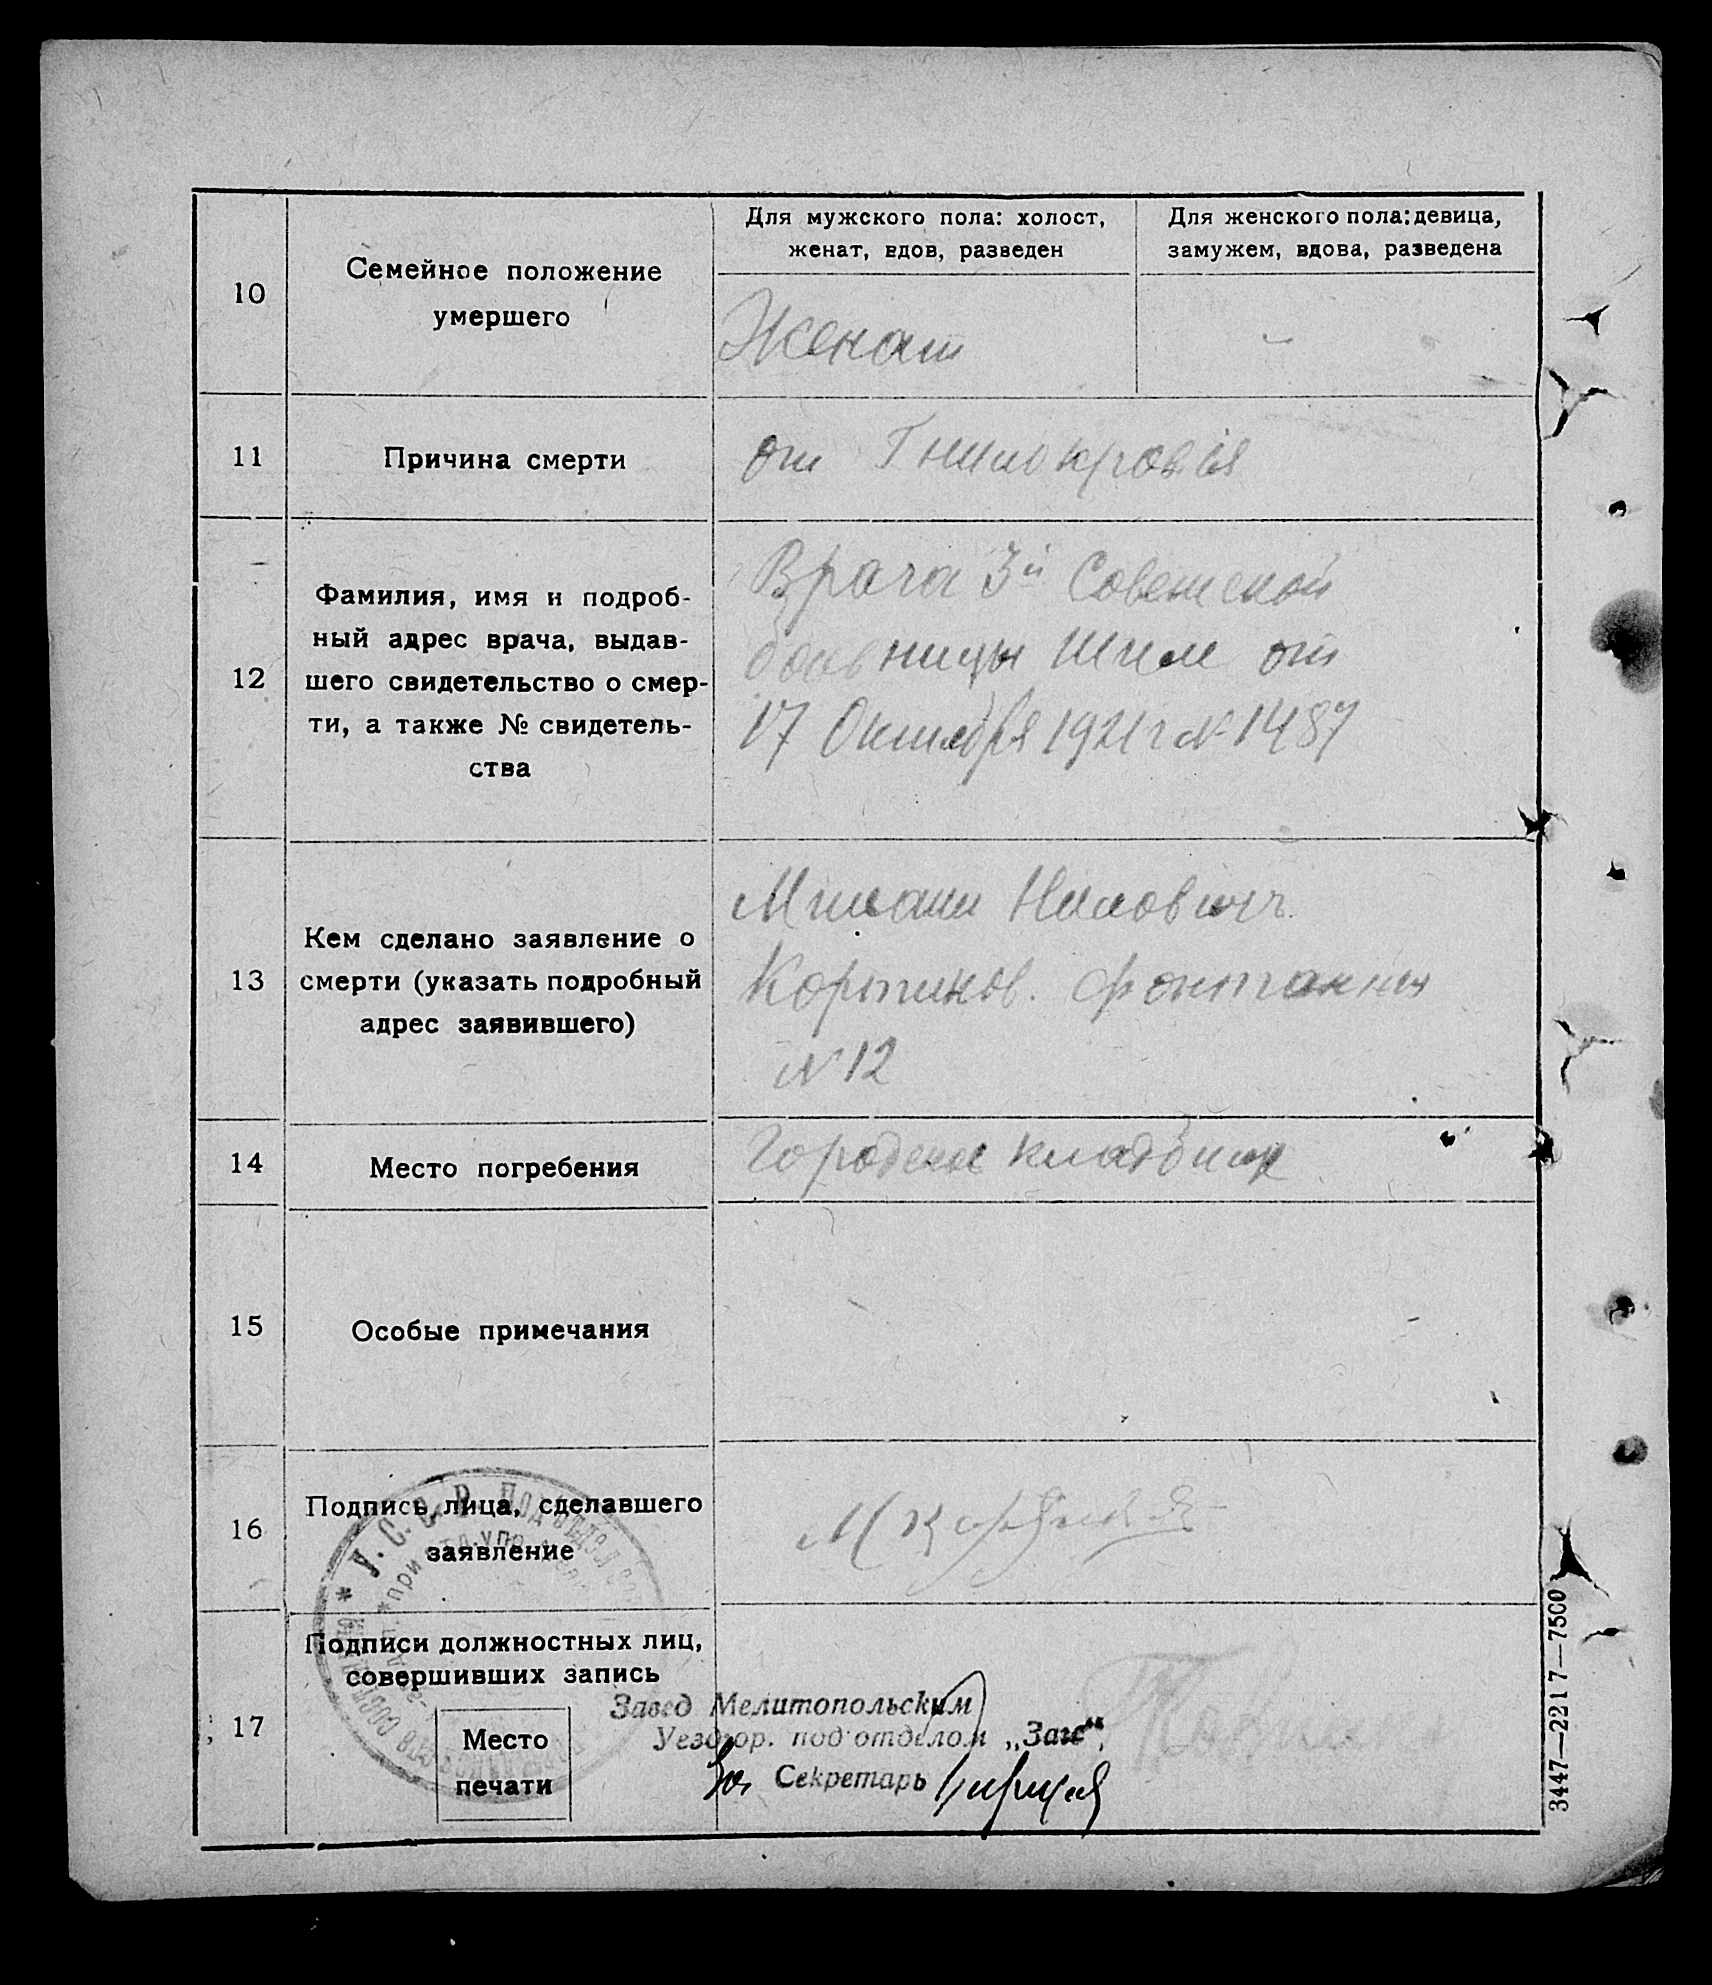 10
Семейное положение
умершего
Для мужского пола: холост,
женат, вдов, разведен
Для женского пола: девица,
замужем, вдова, разведена
Женат
11
Причина смерти
от Гнилокровія
12
Фамилия, имя и подроб-
ный адрес врача, выдав-
шего свидетельство о смер-
ти, а также № свидетель-
ства
Врача 3й Советской
больницы от
17 Октября 1921 г № 1487
13
Кем сделано заявление о
смерти (указать подробный
адрес заявившего)
Нилович
Фонтанная
№ 12
14
Место погребения
Городское кладбище
15
Особые примечания
16
Подпись лица, сделавшего
заявление
М
17
Подписи должностных лиц,
совершивших запись
Место
печати
У. С. С. Р. Подотдел
при
Завед Мелитопольским
Уездгор. подотделом „Загс“
За Секретарь
3447—2217—7500